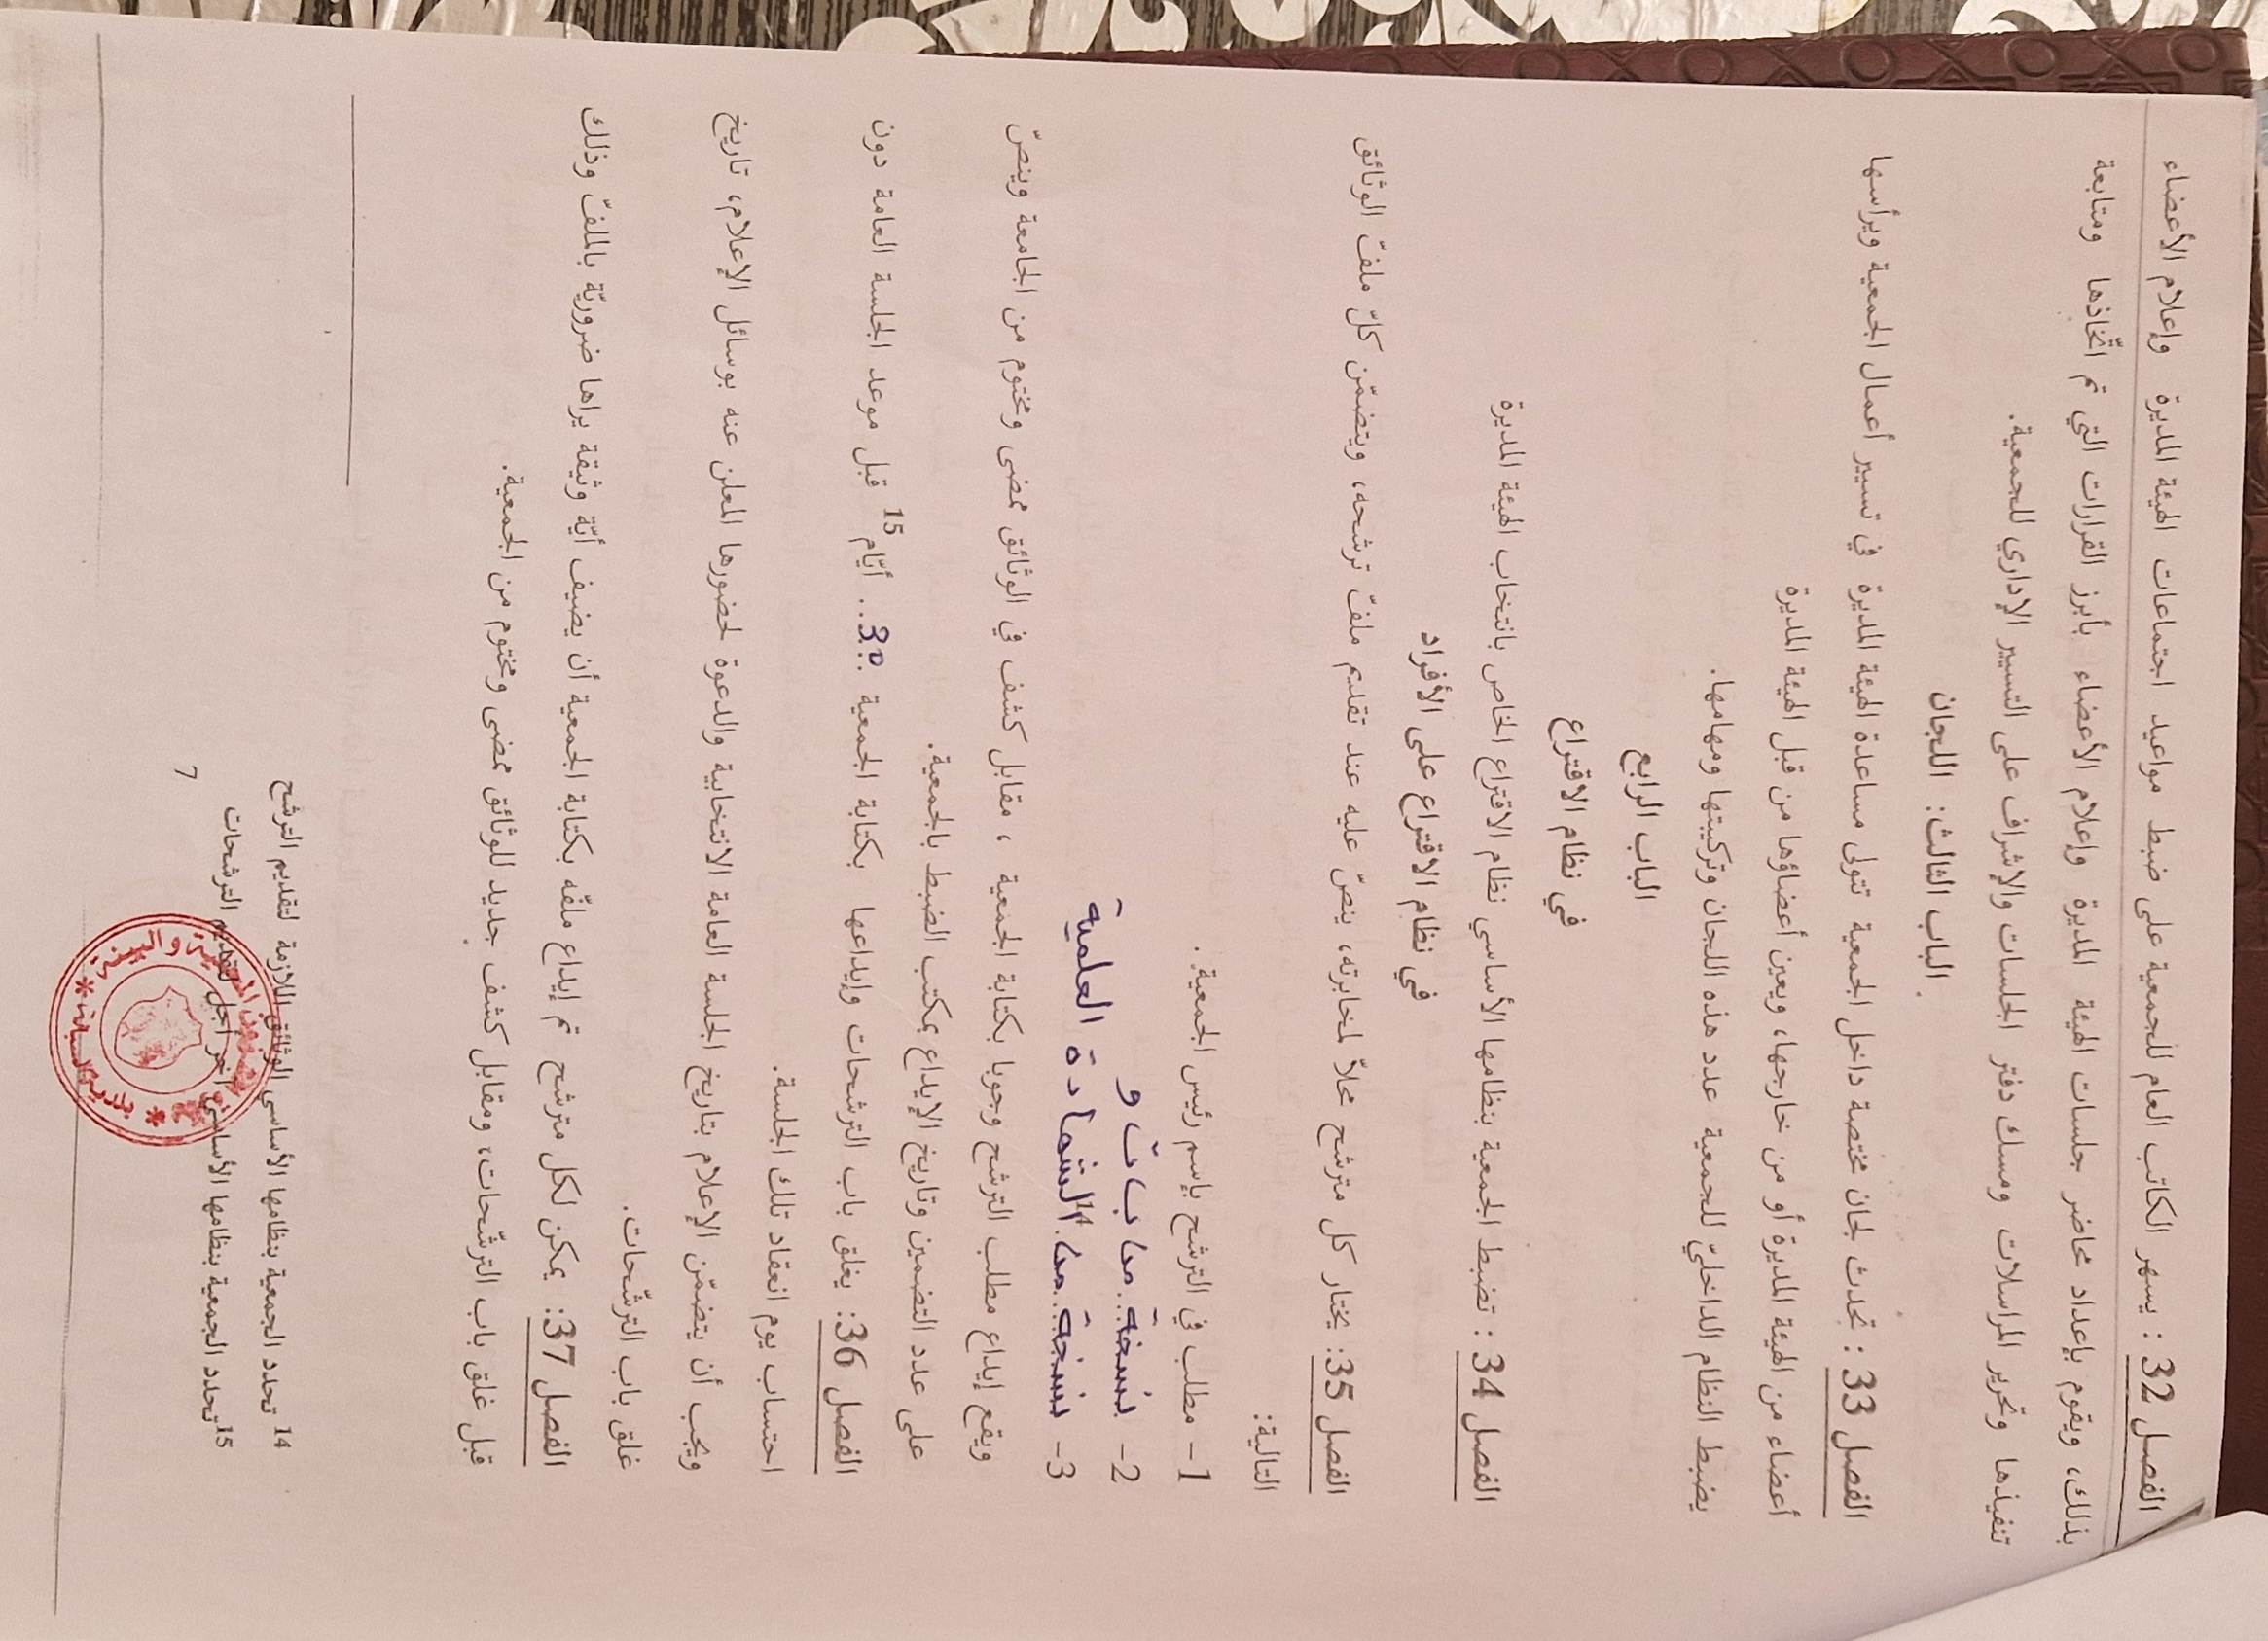 الفصل 32 : يسهر الكاتب العام للجمعية على ضبط مواعيد اجتماعات الهيئة المديرة وإعلام الأعضاء
بذلك، ويقوم بإعداد محاضر جلسات الهيئة المديرة وإعلام الأعضاء بأبرز القرارات التي تم اتّخاذها ومتابعة
تنفيذها وتحرير المراسلات ومسك دفتر الجلسات والإشراف على التسيير الإداري للجمعية.
الباب الثالث: اللجان
الفصل 33 : تحدث لجان مختصة داخل الجمعية تتولى مساعدة الهيئة المديرة في تسيير أعمال الجمعية ويرأسها
أعضاء من الهيئة المديرة أو من خارجها، ويعين أعضاؤها من قبل الهيئة المديرة
يضبط النظام الداخليّ للجمعية عدد هذه اللجان وتركيبتها ومهامها.
الباب الرابع
في نظام الاقتراع
الفصل 34 : تضبط الجمعية بنظامها الأساسي نظام الاقتراع الخاص بانتخاب الهيئة المديرة
في نظام الاقتراع على الأفراد
الفصل 35: يختار كل مترشح محلاّ لمخابرته، ينصّ عليه عند تقديم ملفّ ترشحه، ويتضمّن كلّ ملفّ الوثائق
التالية:
1- مطلب في الترشح بإسم رئيس الجمعية.
2- نسخة من ب ت و
3- نسخة من الشهادة العلمية 14
ويقع إيداع مطلب الترشح وجوبا بكتابة الجمعية ، مقابل كشف في الوثائق ممضى ومختوم من الجامعة وينصّ
على عدد التضمين وتاريخ الإيداع بمكتب الضبط بالجمعية.
الفصل 36: يغلق باب الترشحات وإيداعها بكتابة الجمعية ..30.. أيّام 15 قبل موعد الجلسة العامة دون
احتساب يوم انعقاد تلك الجلسة.
ويجب أن يتضمّن الإعلام بتاريخ الجلسة العامة الانتخابية والدعوة لحضورها المعلن عنه بوسائل الإعلام، تاريخ
غلق باب الترشّحات.
الفصل 37: يمكن لكل مترشح تم إيداع ملفّه بكتابة الجمعية أن يضيف أيّة وثيقة يراها ضروريّة بالملفّ وذلك
قبل غلق باب الترشّحات، ومقابل كشف جديد للوثائق ممضى ومختوم من الجمعية.
14 تحدد الجمعية بنظامها الأساسي الوثائق اللازمة لتقديم الترشح
15 تحدد الجمعية بنظامها الأساسي آخر أجل لتقديم الترشحات
7